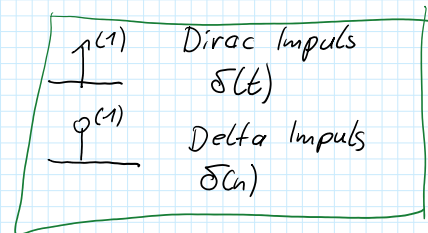 (1) Dirac Impuls
δ(t)
(1) Delta Impuls
δ(n)